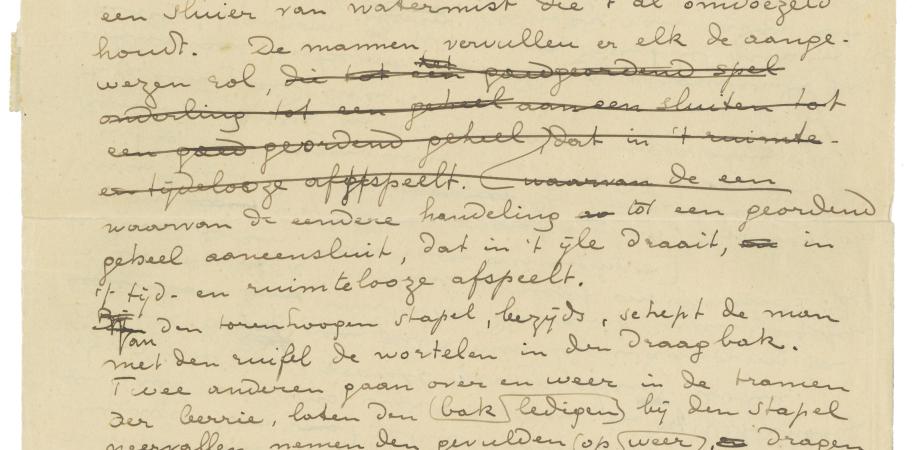 een sluier van watermist die 't al omdoezeld
houdt. De mannen vervullen er elk de aange-
wezen rol, die tot een goedgeordend spel
tot
onderling tot een geheel aaneensluiten tot
een goed geordend geheel dat in 't ruimte-
en tijdelooze afspeelt. (waarvan de een
waarvan de eendere handeling tot een geordend
geheel aaneensluit, dat in 't ijle draait, en in
't tijd- en ruimtelooze afspeelt.
Van den torenhoogen stapel, bezijds, schept de man
met den ruifel de wortelen in den draagbak.
Twee anderen gaan over en weer in de tramen
der berrie, laten den (bak ledigen) bij den stapel
neervallen nemen den gevulden (op weer), dragen